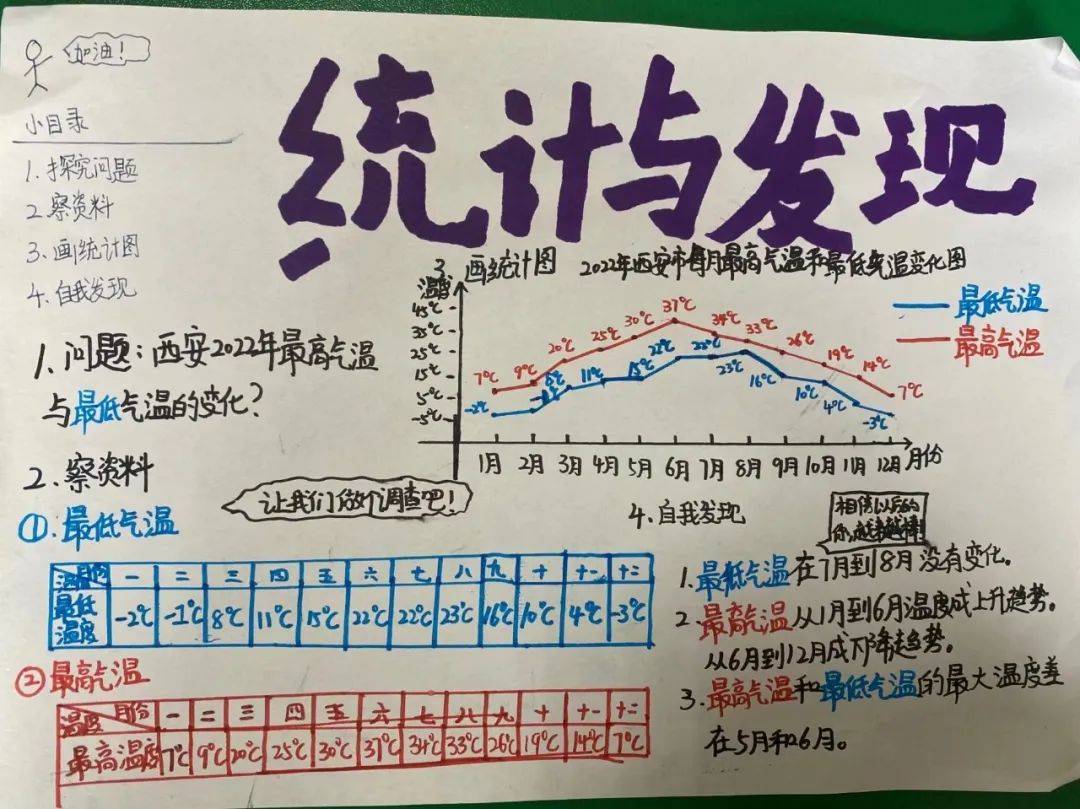 加油！
小目录
1.探究问题
2.察资料
3.画统计图
4.自我发现
统计与发现
1.问题：西安2022年最高气温
与最低气温的变化？
2.察资料
让我们做个调查吧！
①.最低气温
一 二 三 四 五 六 七 八 九 十 十一 十二
最低温度 -2℃ -1℃ 8℃ 11℃ 15℃ 22℃ 22℃ 23℃ 16℃ 10℃ 4℃ -3℃
②最高气温
温度 月份 一 二 三 四 五 六 七 八 九 十 十一 十二
最高温度 7℃ 9℃ 20℃ 25℃ 30℃ 37℃ 34℃ 33℃ 26℃ 19℃ 14℃ 7℃
3.画统计图 2022年西安市每月最高气温和最低气温变化图
最低气温
最高气温
温度
45℃
35℃
25℃
15℃
5℃
-5℃
7℃ 9℃ 20℃ 25℃ 30℃ 37℃ 34℃ 33℃ 26℃ 19℃ 14℃ 7℃
-2℃ 11℃ 15℃ 22℃ 22℃ 23℃ 16℃ 10℃ 4℃ -3℃
1月 2月 3月 4月 5月 6月 7月 8月 9月 10月 11月 12月 月份
4.自我发现
相信以后的
你，越来越棒！
1.最低气温在7月到8月没有变化。
2 最高气温从1月到6月温度成上升趋势。
从6月到12月成下降趋势。
3.最高气温和最低气温的最大温度差
在5月和6月。